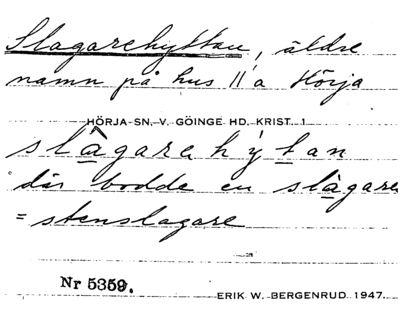 Slagarehyttan, äldre
namn på hus 11a Hörja
HÖRJA SN. V. GÖINGE HD. KRIST. 1
slâgare hýtan
där bodde en slàgare
= stenslagare
Nr 5359.
ERIK W. BERGENRUD 1947.